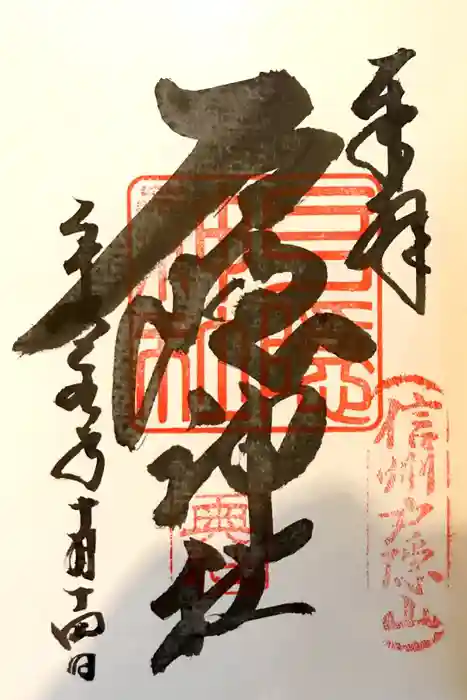 奉拝
信州戸隠山
戸隠神社
奥社
十月十四日